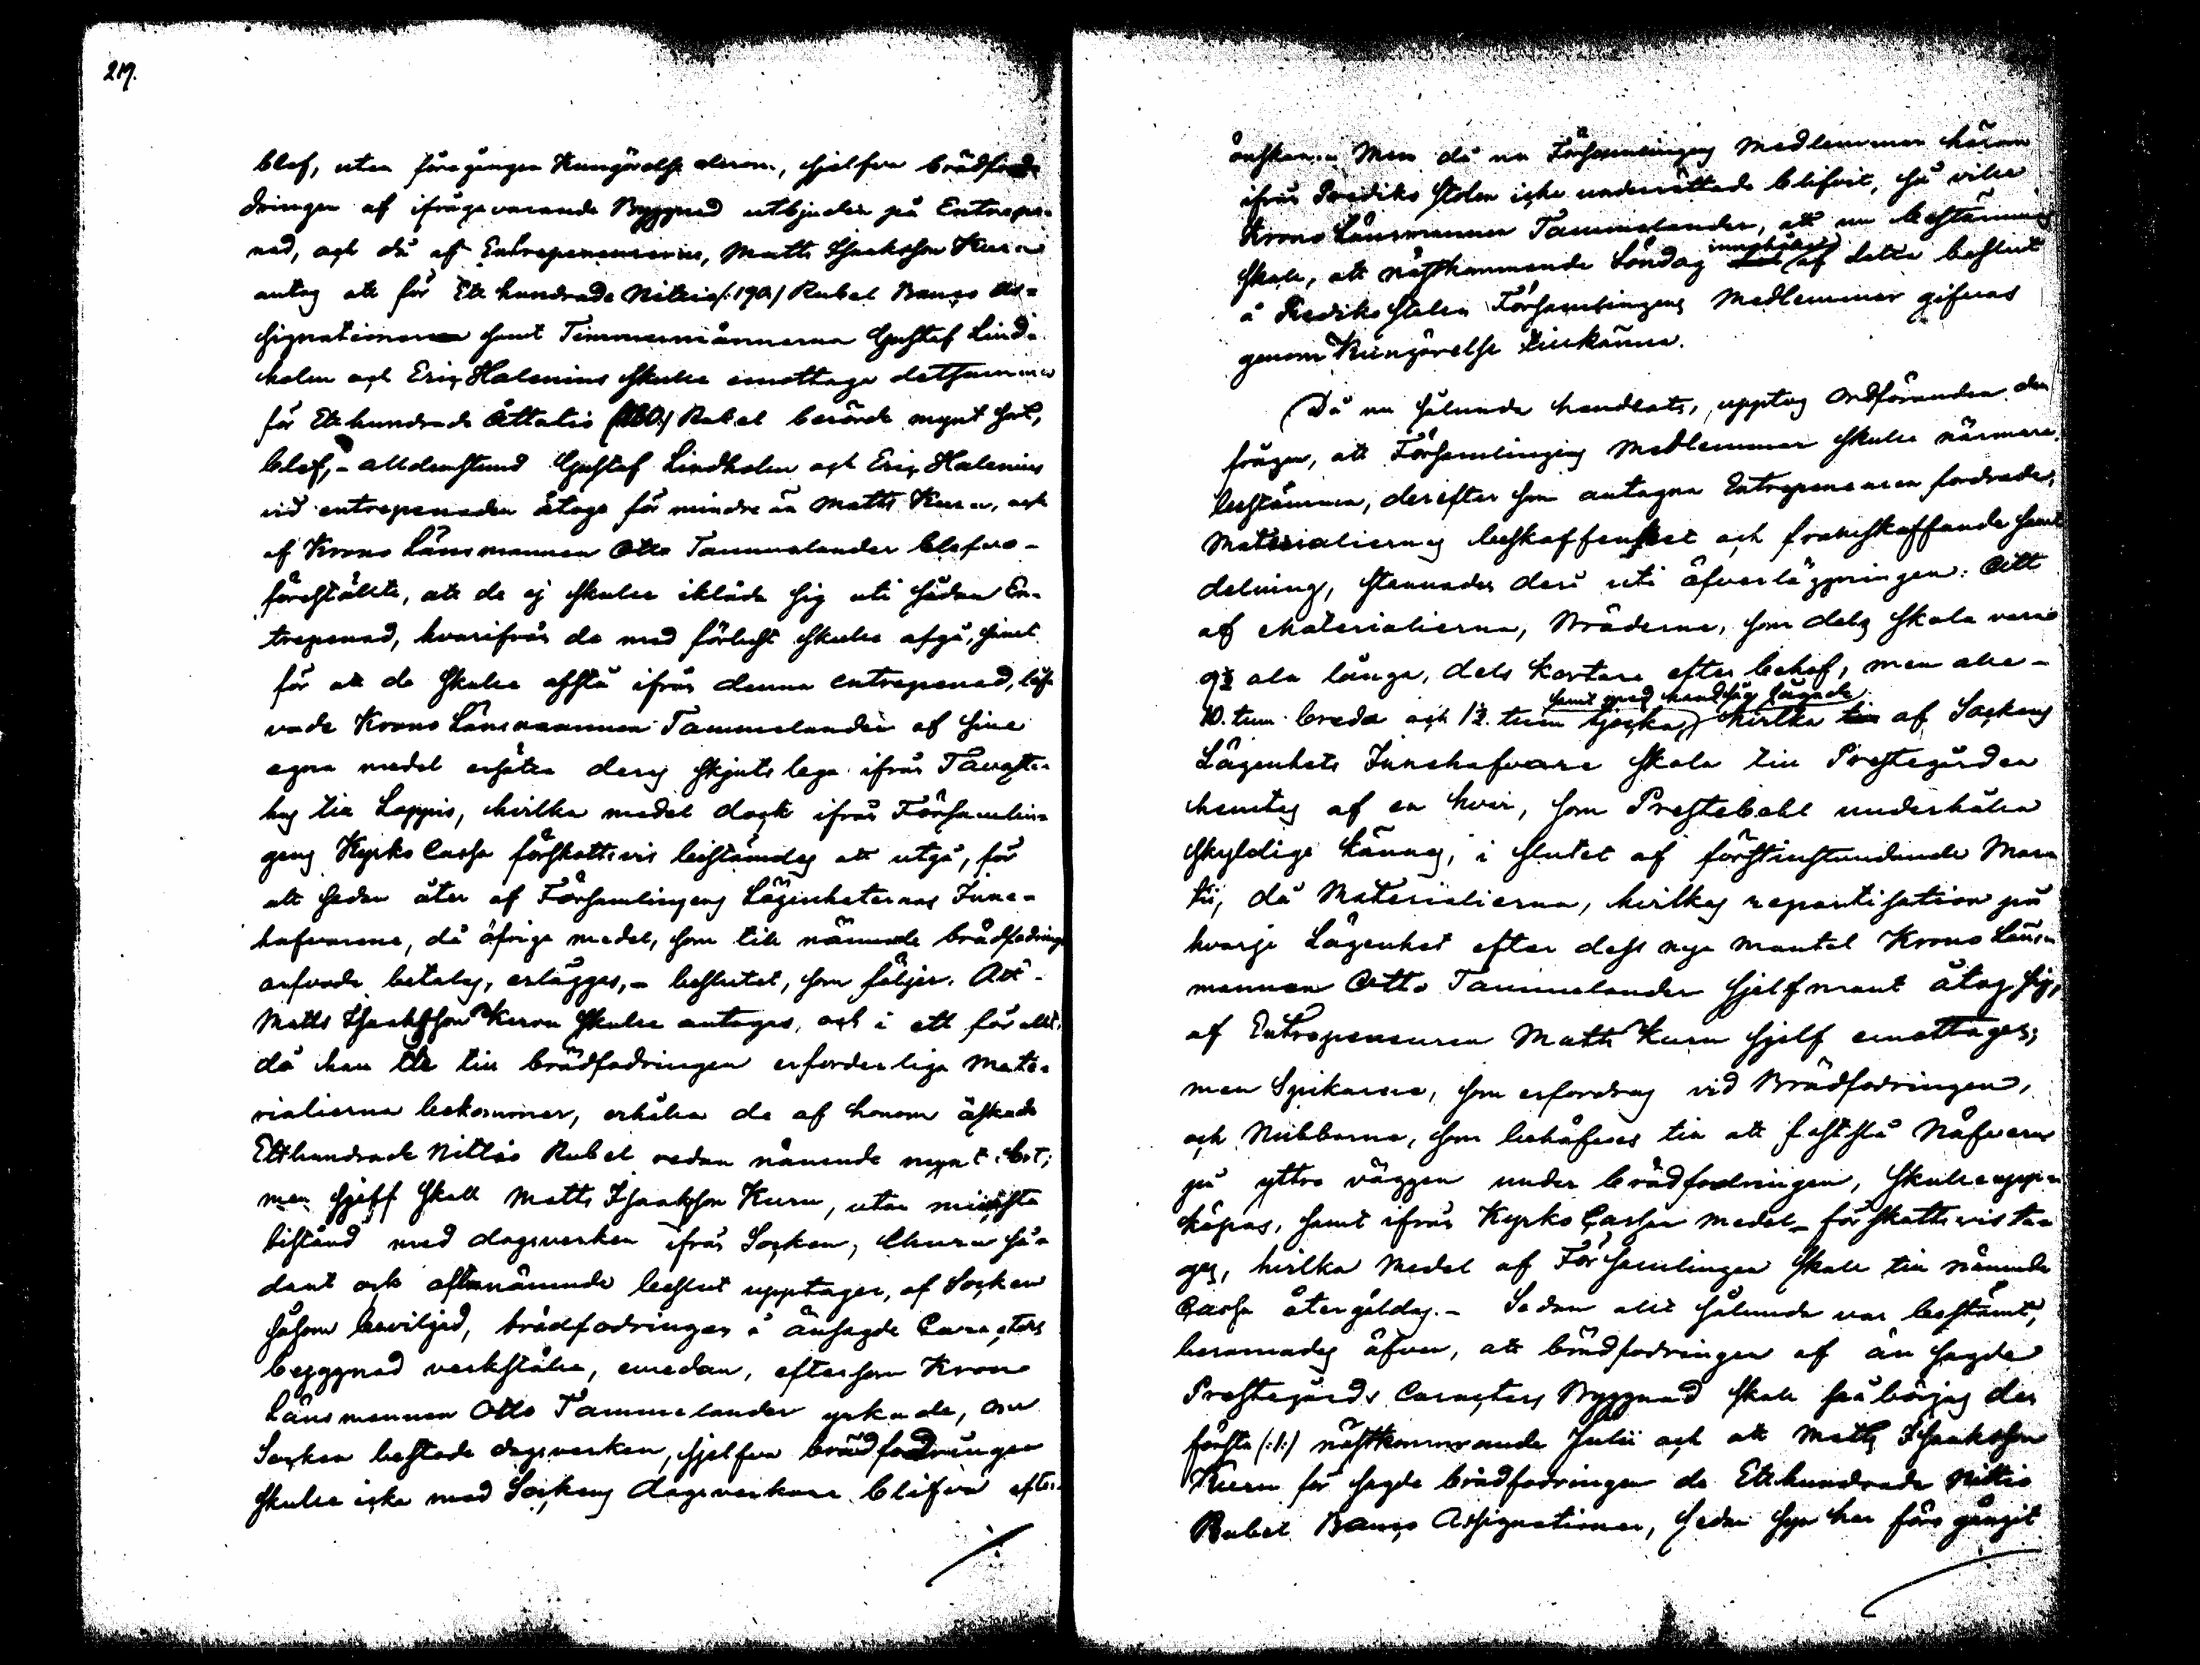 219.
blef, utan föregången Kungörelse derom, sjelfva brädfod-
dringen af ifrågavarande Byggnad utbjuden på Entrepe-
nad, och då af Entrepeneurerne, Matts Isaksson Kuru
antog att för Ett hundrade Nittio /:190./ Rubel Banco As-
signationer samt Timmermännerna Gustaf Lind-
holm och Eric Halenius skulle emottaga detsamma
för Ett hundrade Åttatio /180./ Rubel berörde mynt sort,
blef, - alldenstund Gustaf Lindholm och Eric Halenius
vid entrepenaden åtogo för mindre än Matts Kuru, och
af Krono Länsmannen Otto Tammelander blefvo -
förestälte, att de ej skulle ikläda sig uti sådan En-
trepenad, hvarifrån de med förlust skulle afgå, samt
för att de skulle afstå ifrån denna entrepenad, lof-
vade Krono Länsmannen Tammelander af sine
egna medel ersätta deras skjuts lega ifrån Tavaste-
hus till Loppis, hvilka medel dock ifrån Församlin-
gens Kyrko Cassa förskottsvis bestämdes att utgå, för
att sedan åter af Församlingens Lägenheternas Inne-
hafvarene, då öfrige medel, som till nämnde brädfodring
använde betalas, erlägges, - beslutet, som följer. Att -
Matts Isaksson Kuru skulle antagas, och i ett för allt,
då han till brädfodringen erforderliga Mate-
rialierna bekommer, erhålla de af honom äskade
Etthundrade Nittio Rubel redan nämnde mynt sort;
men sjelf skall Matts Isaksson Kuru, utan minsta
bistånd med dagsverken ifrån Socken, churu så-
dant och oftanämnde beslut upptages, af Socken
såsom beviljad, brädfodringen å änsagde Caracters
byggnad verkställa, emedan, eftersom Krono
Länsmannen Otto Tammelander yrkade, om
Socken bestode dagsverken, sjelfva brädfodringen
skulle icke med Sockens dagsverkare blifva efter
önskan. Men då nu Församlingens Medlemmar härom
ifrån Prediko stolen icke underrättade blifvit, så ville
Krono Länsmannen Tammelander, att nu bestämmas
skall, att nästkommande Söndag innehållet af detta beslut
å Prediko stolen Församlingens Medlemmar gifvas
genom Kungörelse tillkänna.
Då nu sålunda handlats, upptog Ordföranden den
frågan, att Församlingens Medlemmar skulle närmare
bestämma, derefter som antagna Entrepeneuren fordrade,
Materialiernas beskaffenhet och framskaffande samt
delning, stannades der uti öfverläggningen: Att
af Materialierna, Bräderne, som dels skola vara
9½ aln långa, dels kortare efter behof, men alle -
10. tum breda och 1½. tum tjocka, samt med handsåg sågade hvilka af Sockens
Lägenhets Innehafvare skola till Prestegården
hemtas af en hvar, som Prestebohl underhålla
skyldige kännas, i slutet af förstinstundande Mar-
tii, då Materialierna, hvilkas repartisation på
hvarje Lägenhet efter dess nya mantal Krono Läns-
mannen Otto Tammelander sjelfmant åtog sig,
af Entrepeneuren Matts Kuru sjelf emottages;
men Spikarne, som erfordras vid Brädfodringen,
och Nubbarna, som behöfves till att fastslå Näfverne
på yttre väggen under brädfodringen, skulle upp-
köpas, samt ifrån Kyrko Cassan medel förskottsvis ta-
gas, hvilka Medel af Församlingen skall till nämnde
Cassa återgäldas. - Sedan allt sålunda var bestämt,
beramades äfven, att brädfodringen af än sagde
Prestegårds Caracters Byggnad skall påbörjas den
första (:1:) nästkommande Julii och att Matts Isaksson
Kuru för sagde brädfodringen de Etthundrade Nittio
Rubel Banco Assignationer, sedan syn har föregångit